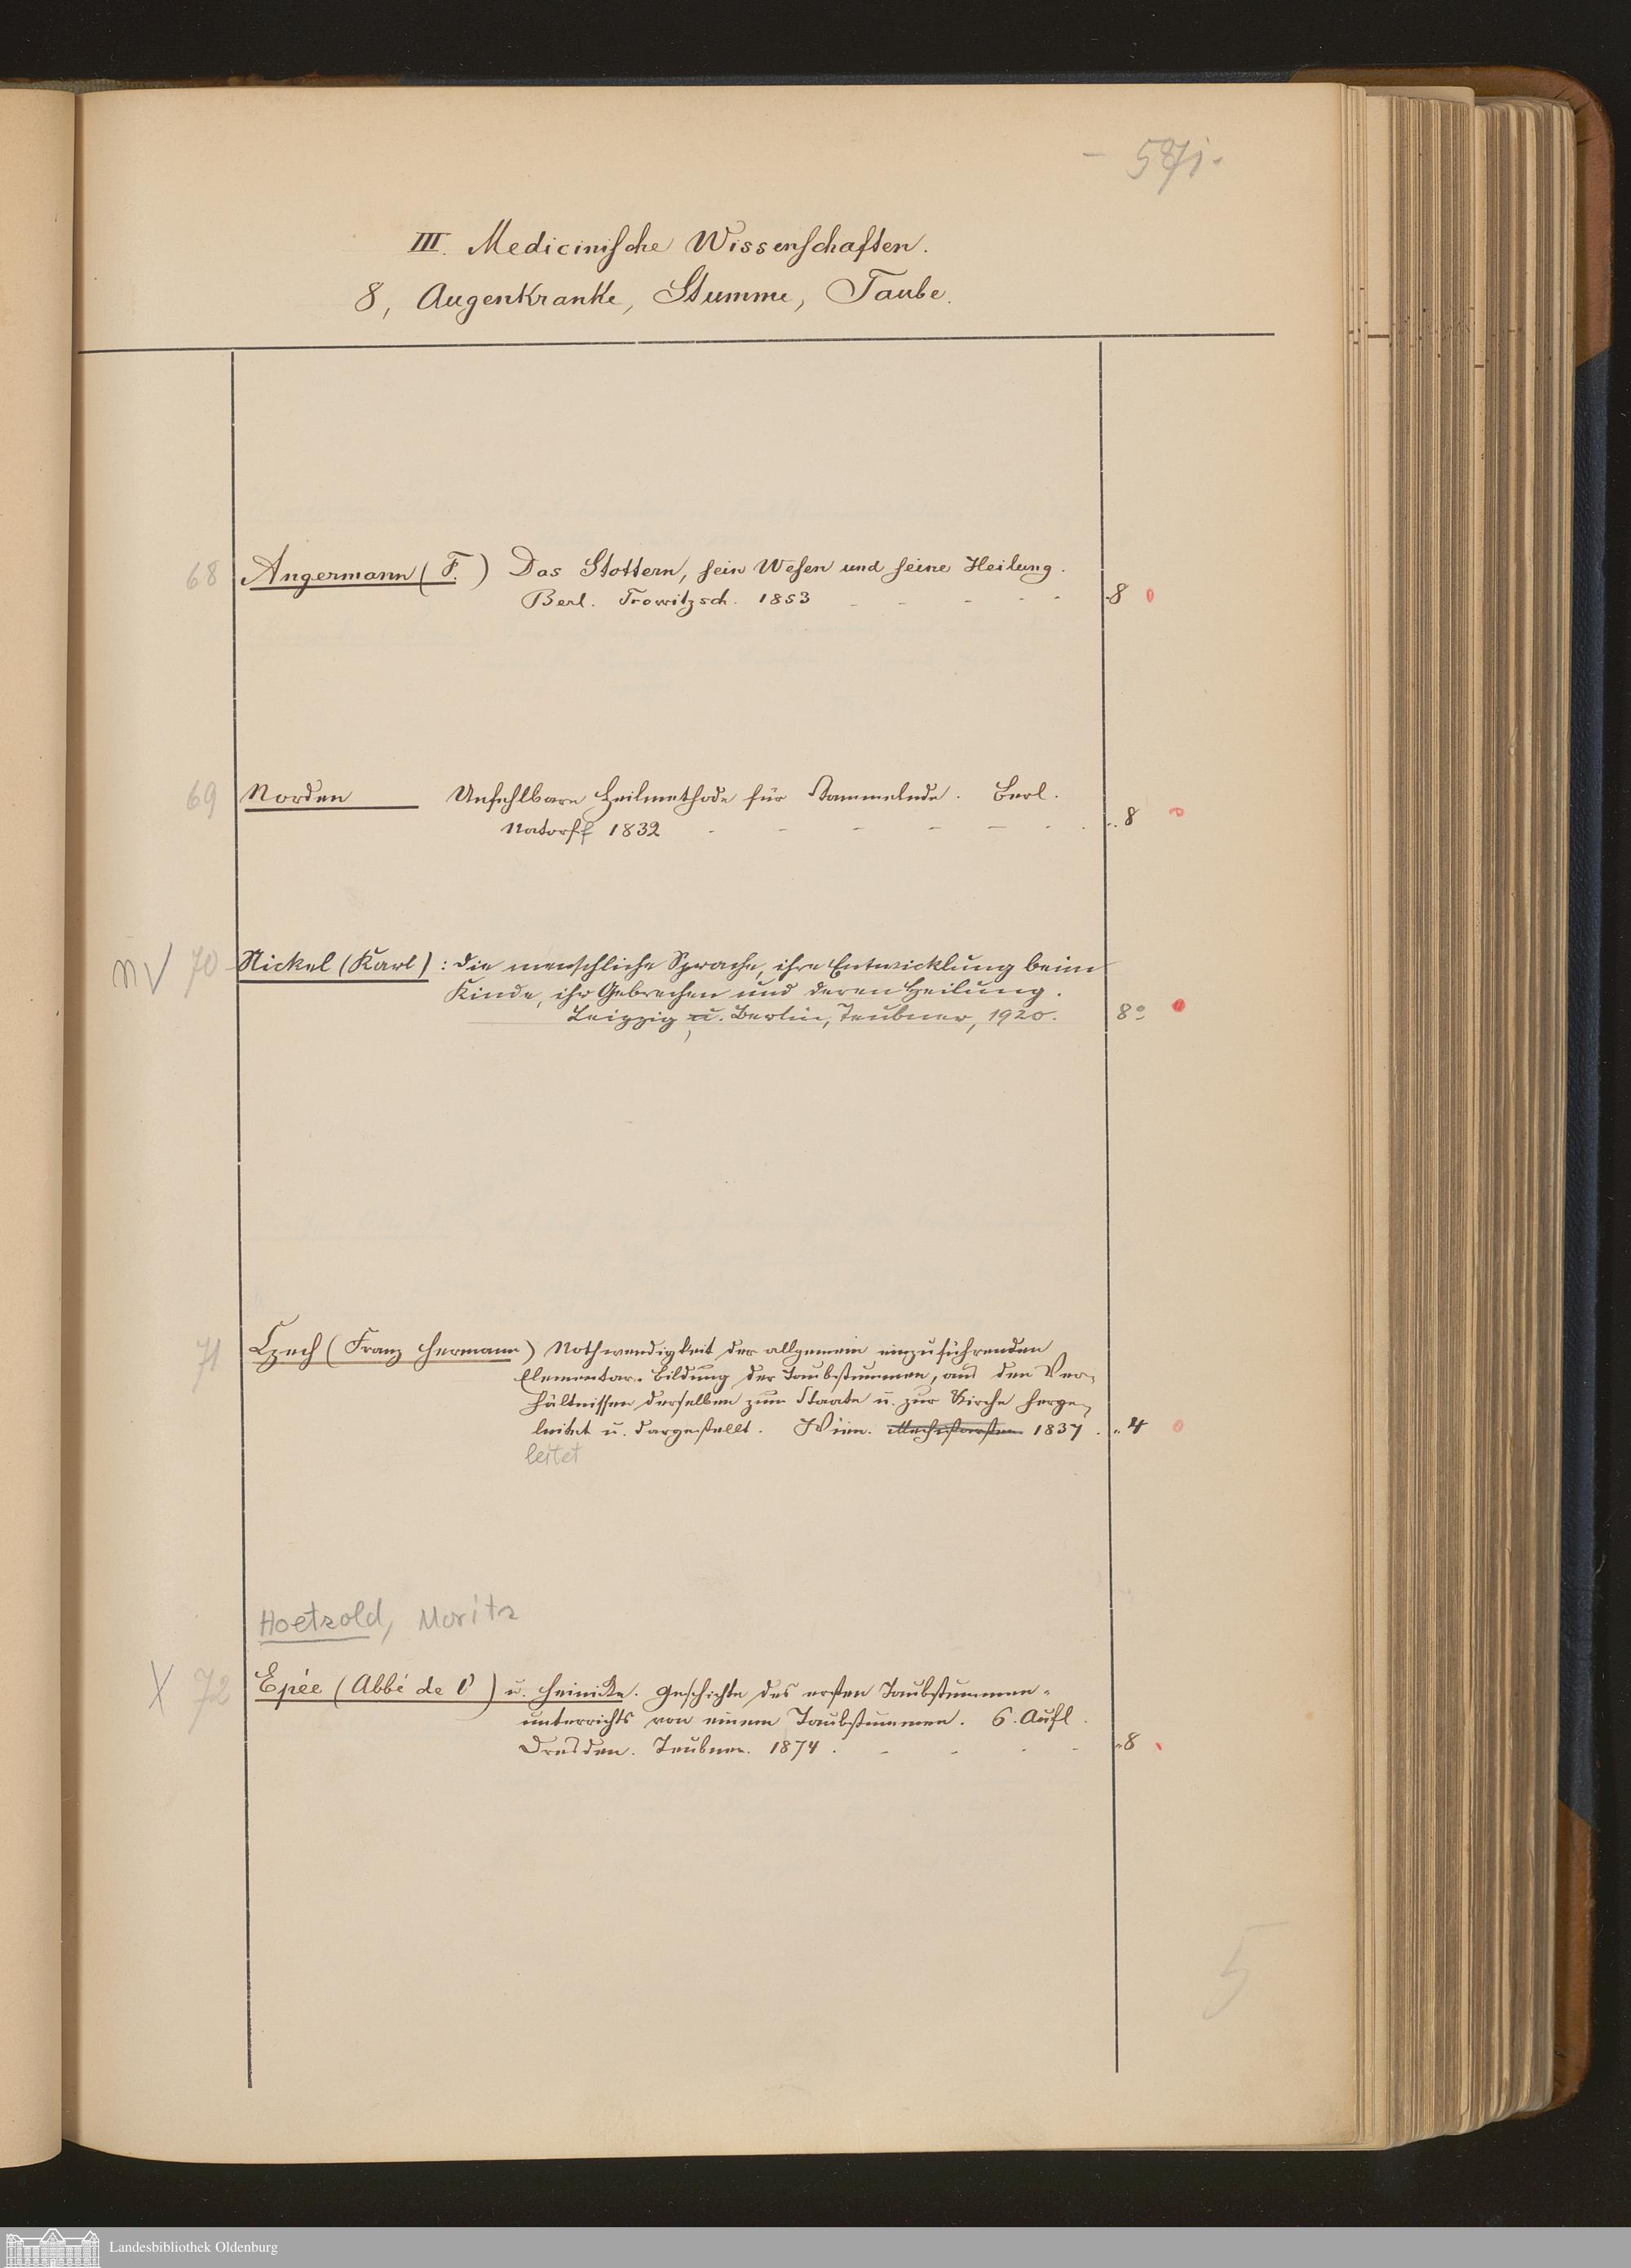 - 571.
III. Medicinische Wissenschaften.
8, Augenkranke, Stumme, Taube.
68 Angermann (F.) Das Stottern, sein Wesen und seine Heilung.
Berl. Trowitzsch. 1853 - - - - - 8
69 Norden Unfehlbare Heilmethode für Stammelnde. Berl.
Natorff 1832 - - - - - - - 8
nV 70 Nickel (Karl): Die menschliche Sprache, ihre Entwicklung beim
Kinde, ihr Gebrechen und deren Heilung.
Leipzig u. Berlin, Teubner, 1920. 8°
71 Czech (Franz Hermann) Nothwendigkeit der allgemein einzuführenden
Elementar-Bildung der Taubstummen, aus den Ver-
hältnissen derselben zum Staate u. zur Kirche herge-
leitet u. dargestellt. Wien. 1837. 4
leitet
Hoetzold, Moritz
X 72 Epée (Abbé de l') u. Heinicke. Geschichte des ersten Taubstummen-
unterrichts von einem Taubstummen. 6. Aufl.
Dresden. Teubner. 1874. - - - - 8
5
Landesbibliothek Oldenburg